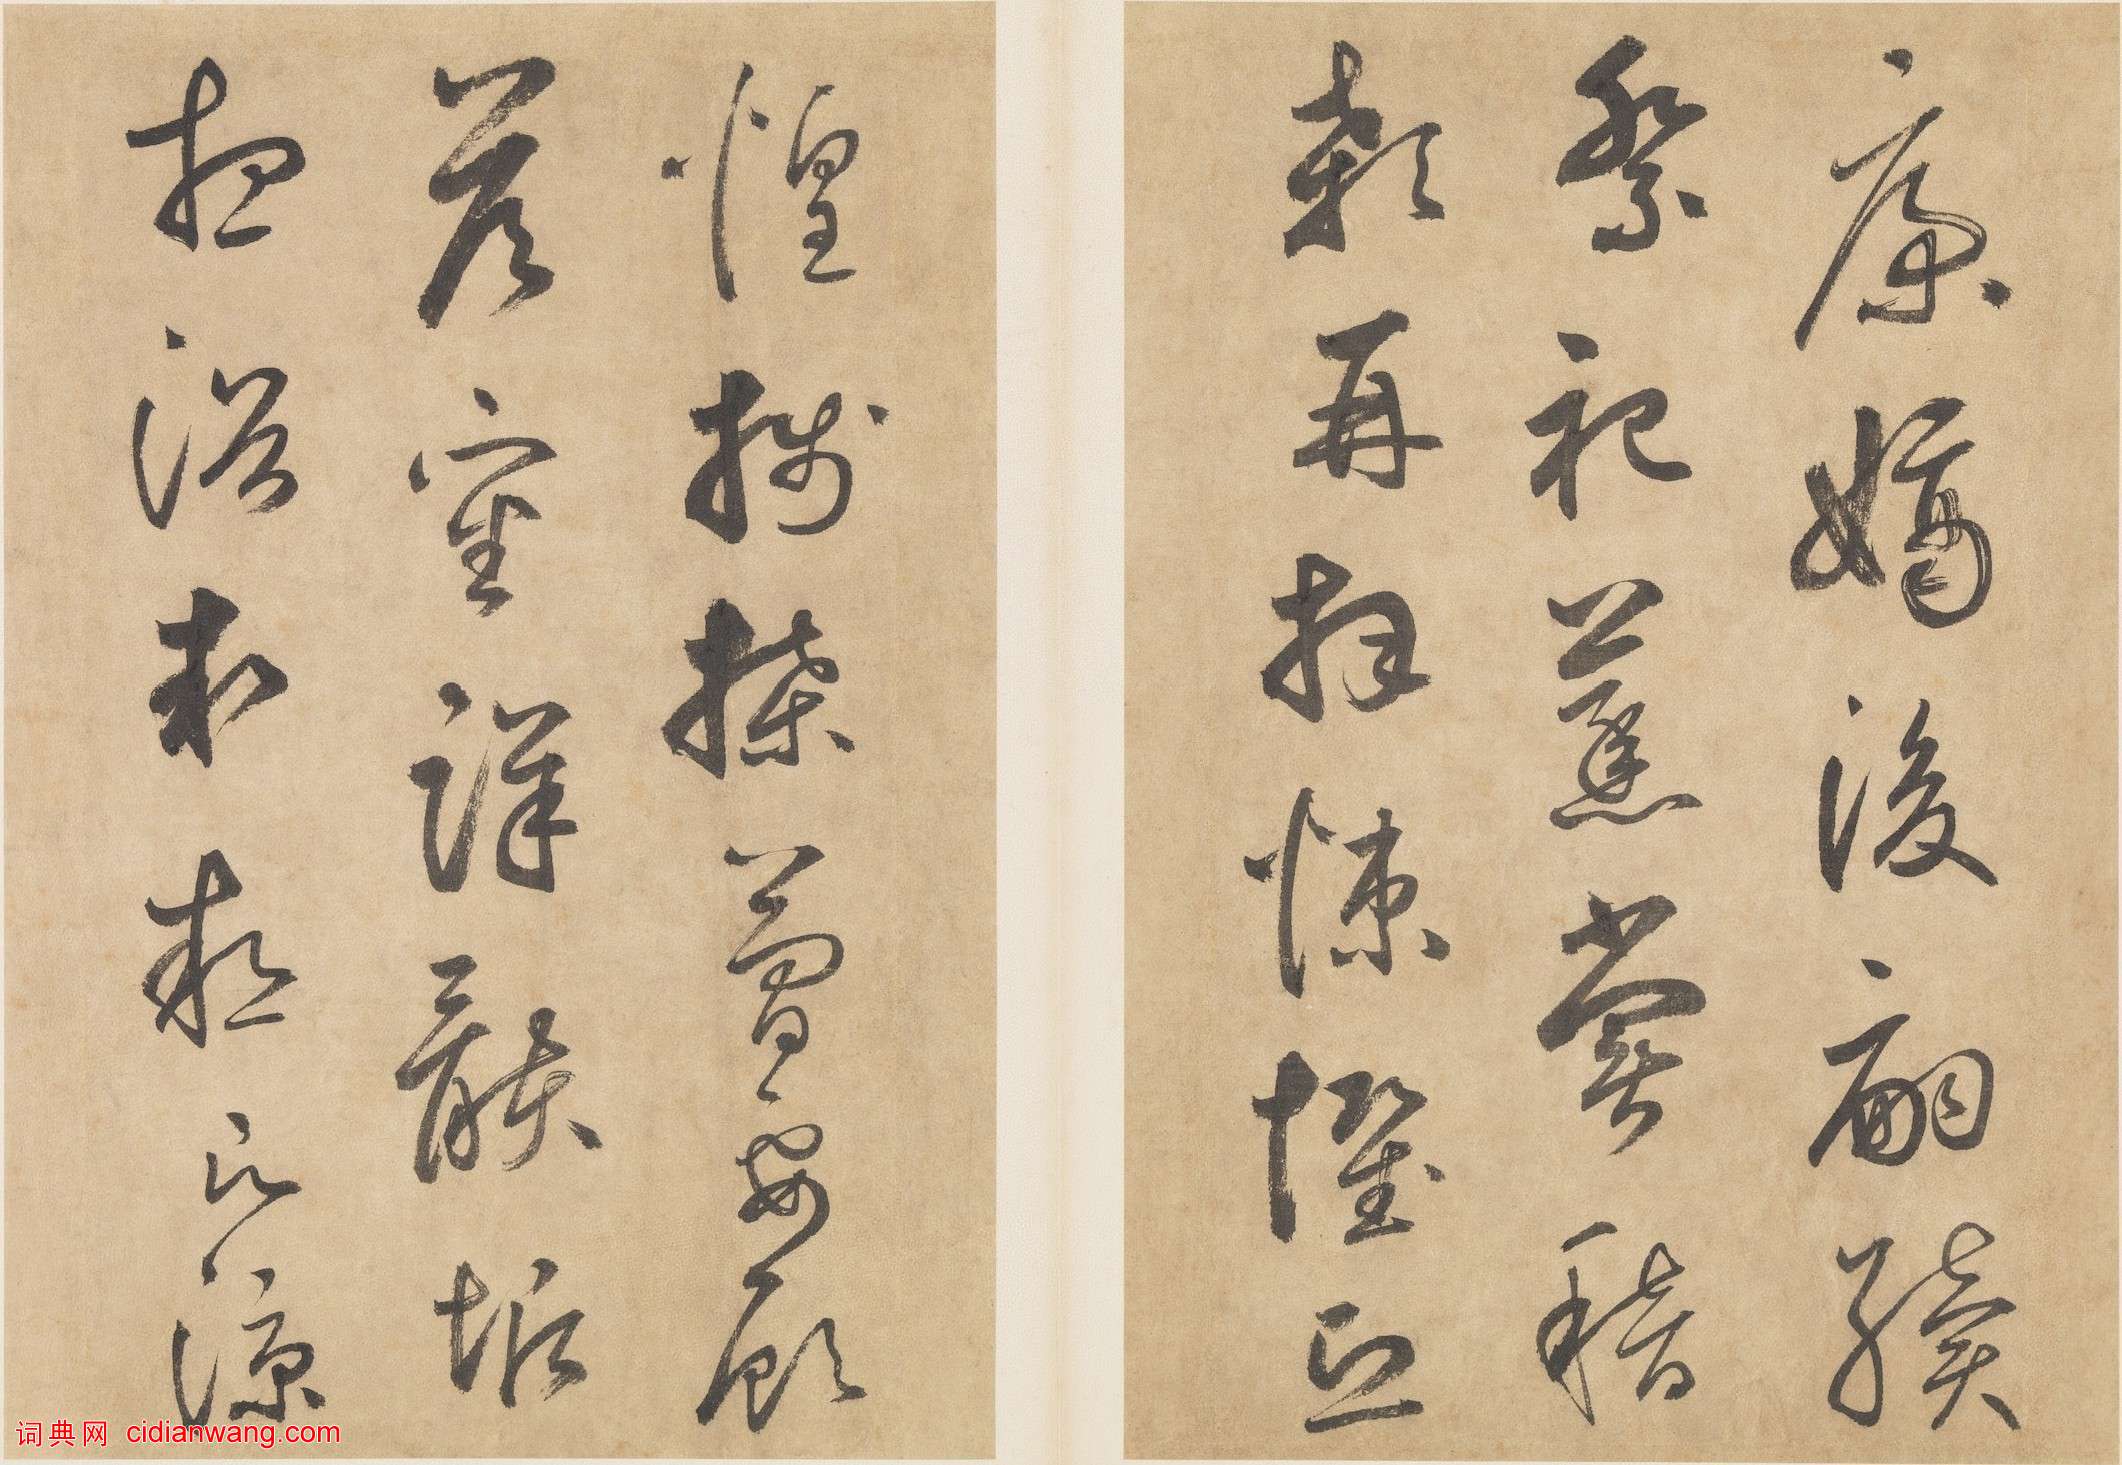 康嫡後嗣續
祭祀蒸嘗稽
顙再拜悚懼恐
惶牋牒簡要顧
答審詳骸垢
想浴執熱願涼
词典网 cidianwang.com